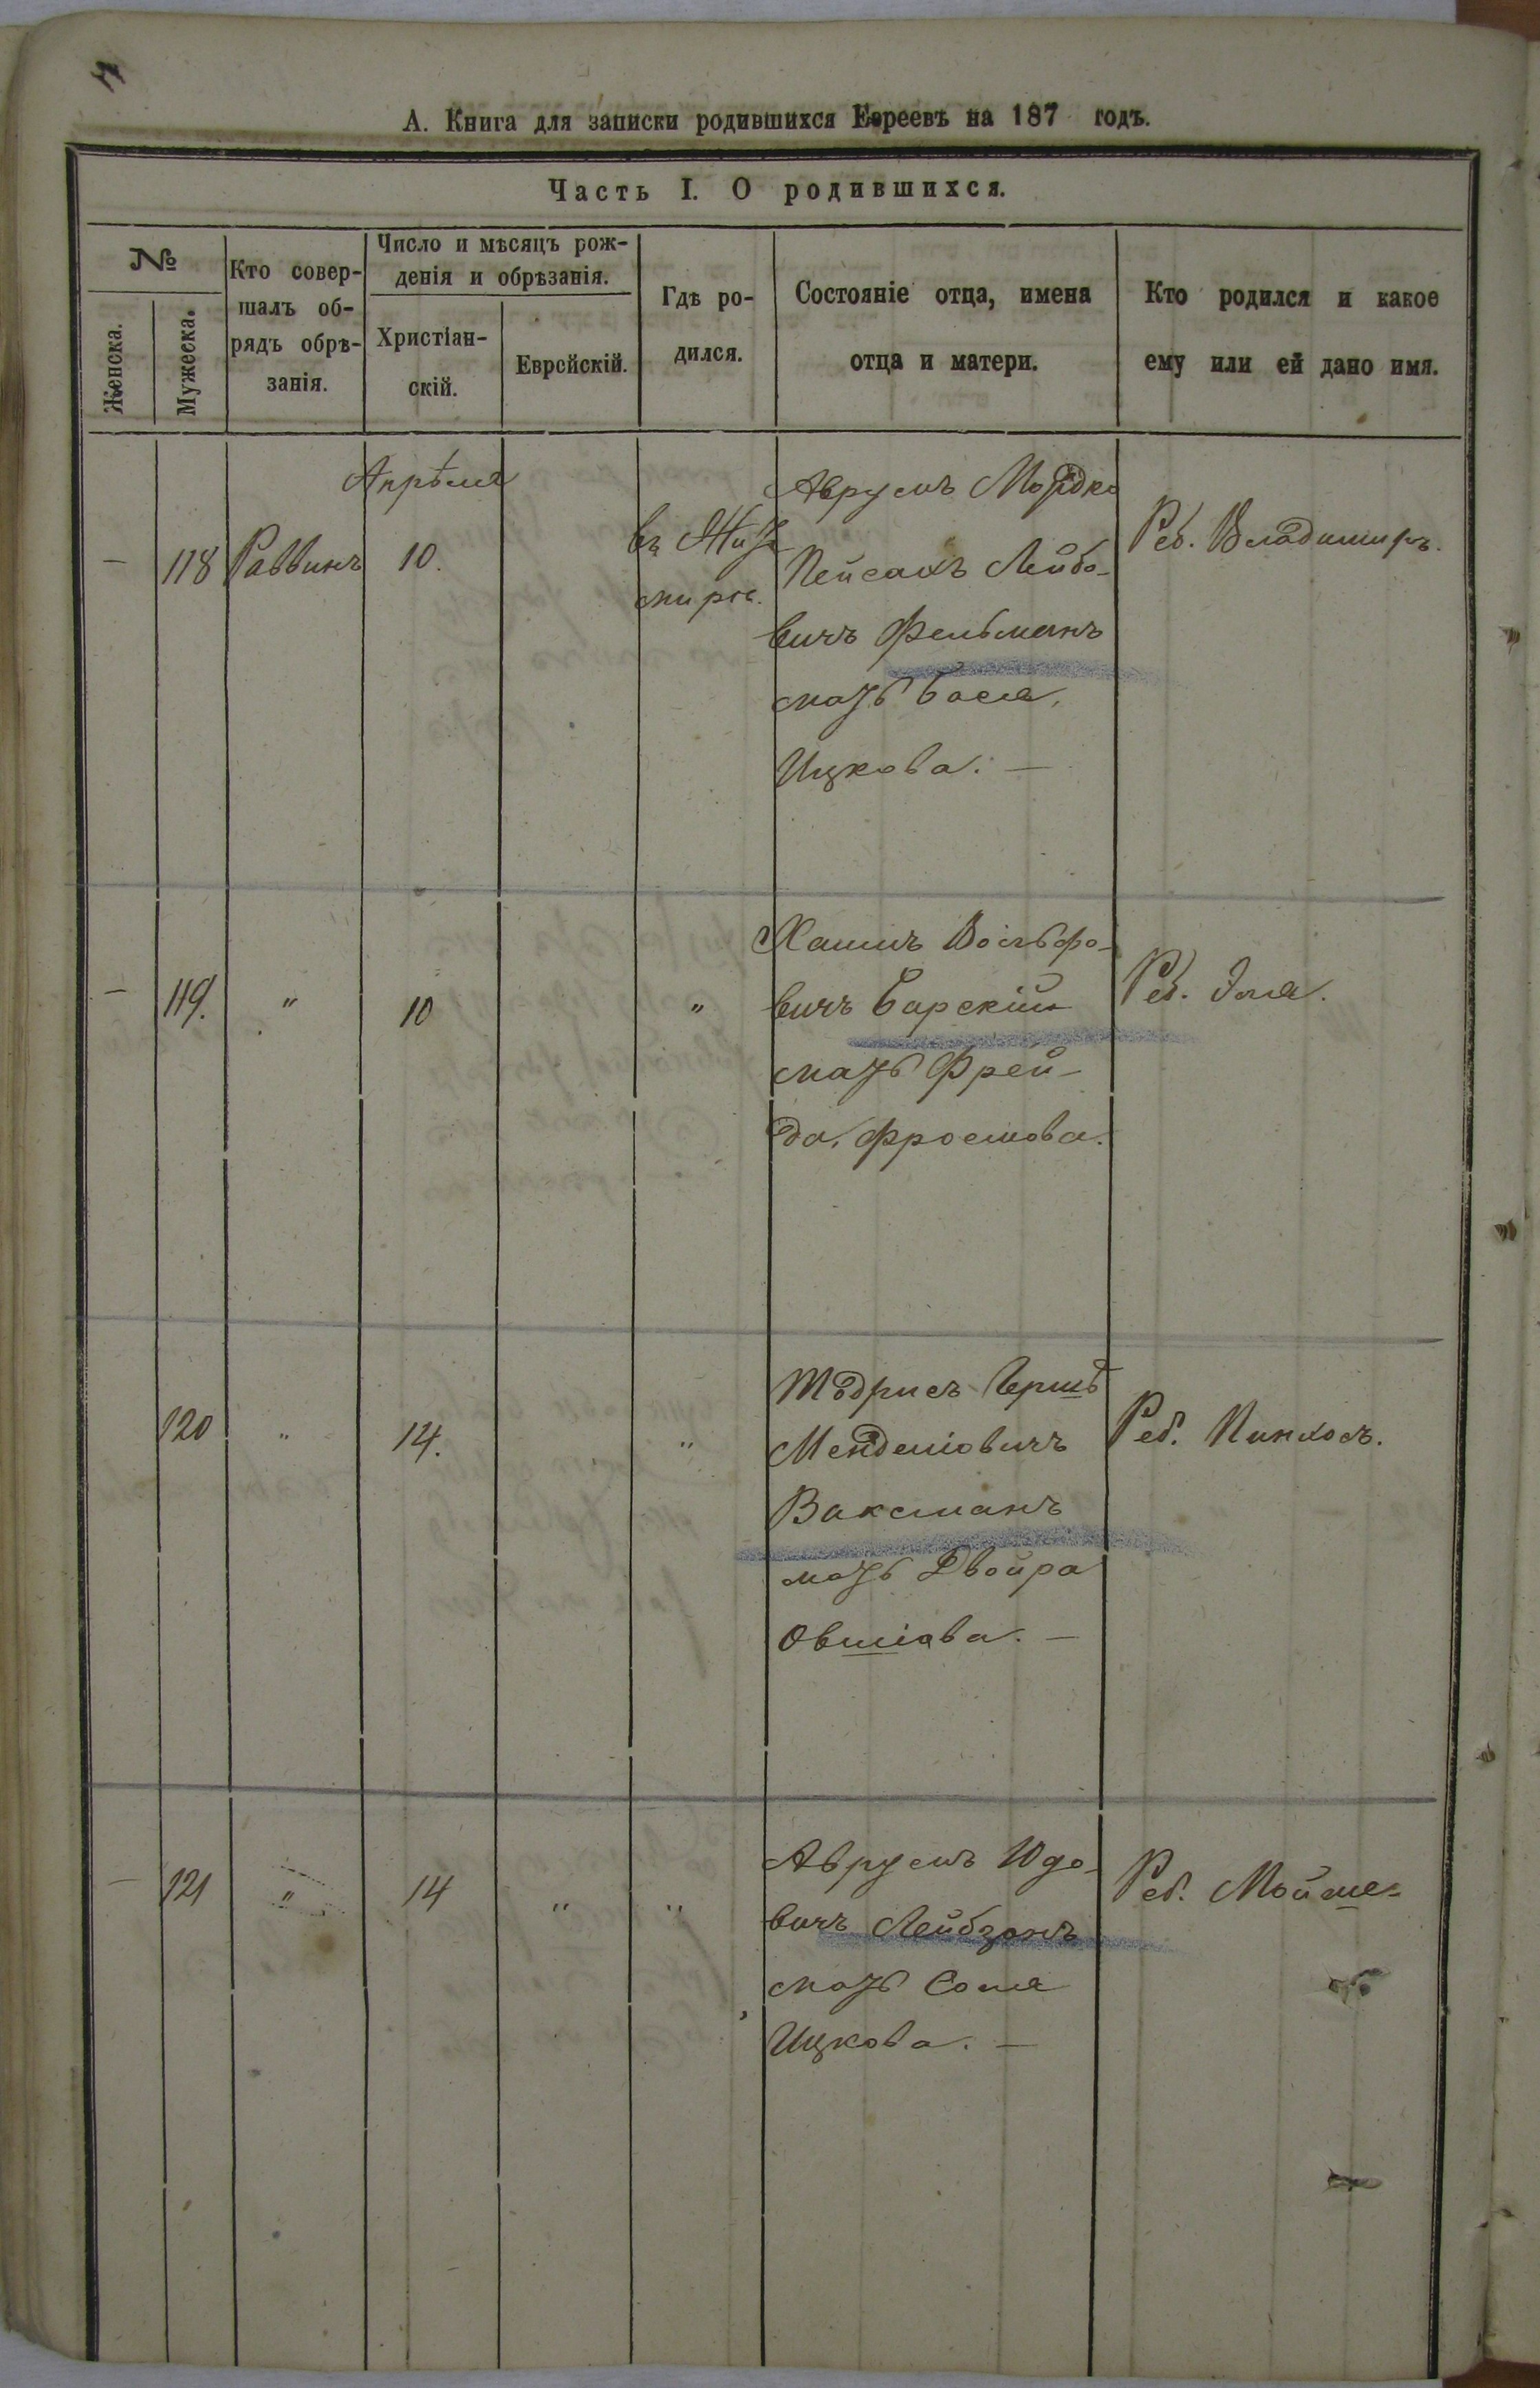 А. Книга для записки родившихся Евреевъ на 187 годъ.
Часть I. О родившихся.
№
Женска.
Мужеска.
Кто совер-
шалъ об-
рядъ обрѣ-
занія.
Число и мѣсяцъ рож-
денія и обрѣзанія.
Христіан-
скій.
Еврейскій.
Гдѣ ро-
дился.
Состояніе отца, имена
отца и матери.
Кто родился и какое
ему или ей дано имя.
Апрѣля
— 118 Раввинъ 10.
въ Жито
мирѣ.
Аврумъ Мордко
Пейсахъ Лейбо-
вичъ Фельманъ
мать Бася
Ицкова. —
Реб. Владимиръ.
— 119. " 10 "
Хаимъ Вольфо-
вичъ Барскій
мать Фрей-
да, Фроимова.
Реб. Эля.
120 " 14. "
Тодрисъ Гершъ
Менделіовичъ
Ваксманъ
мать Двойра
Овшіова. —
Реб. Пинхосъ.
— 121 " 14 " "
Аврумъ Юдо-
вичъ Лейбзонъ
мать Сося
Ицкова. —
Реб. Мойше-